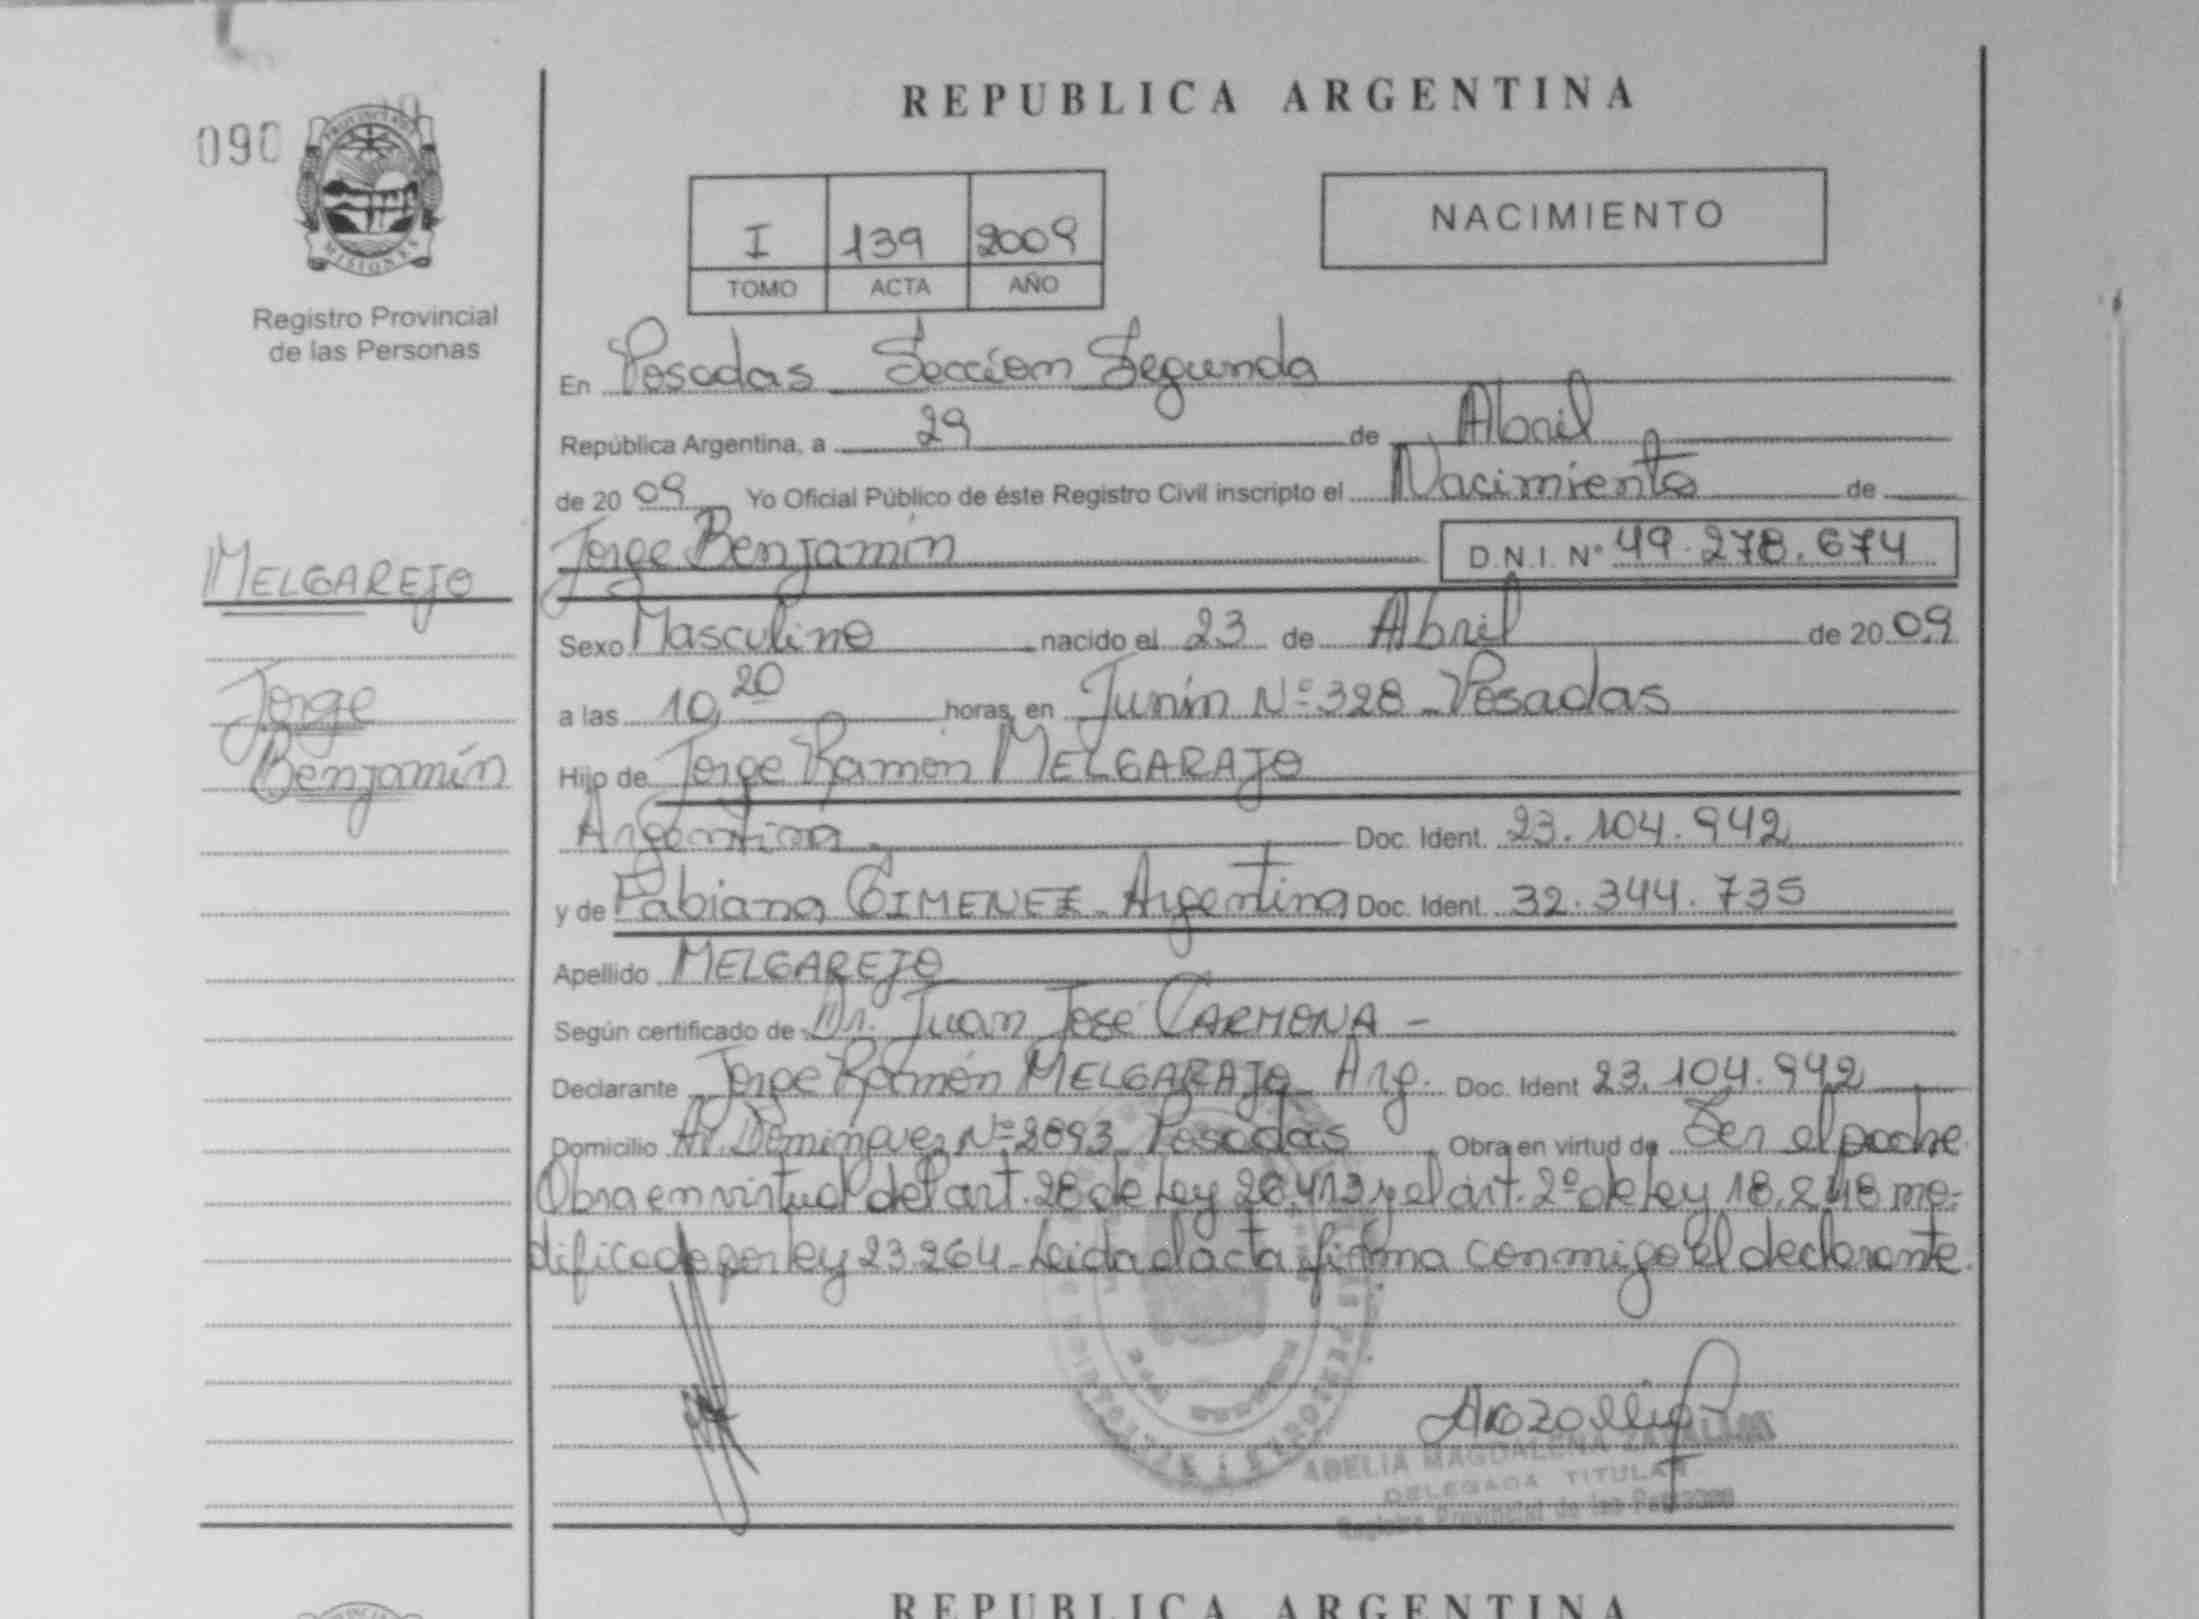 REPUBLICA ARGENTINA
090
PROVINCIA DE
MISIONES
NACIMIENTO
I 139 2009
TOMO ACTA AÑO
Registro Provincial
de las Personas
En Posadas Sección Segunda
República Argentina, a 29 de Abril
de 2009 Yo Oficial Público de éste Registro Civil inscripto el Nacimiento de
MELGAREJO
Jorge Benjamín D.N.I. Nº 49.278.674
Sexo Masculino nacido el 23 de Abril de 2009
Jorge
a las 10,20 horas, en Junín Nº 328 - Posadas
Benjamín
Hijo de Jorge Ramón MELGARAJO
Argentina - Doc. Ident. 23.104.942
y de Fabiana GIMENEZ - Argentina Doc. Ident. 32.344.735
Apellido MELGAREJO
Según certificado de Dr. Juan José CARMONA -
Declarante Jorge Ramón MELGARAJO Arg. Doc. Ident 23.104.942
Domicilio Av. Dominguez Nº 2693 Posadas Obra en virtud de Ser el padre
Obra en virtud del art. 28 de Ley 26.413 y el art. 2º de Ley 18.248 mo-
dificado por ley 23.264 - Leida el acta firma conmigo el declarante.
ABELIA MAGDALENA
DELEGADA TITULAR
Registro Provincial de las Personas
REPUBLICA ARGENTINA